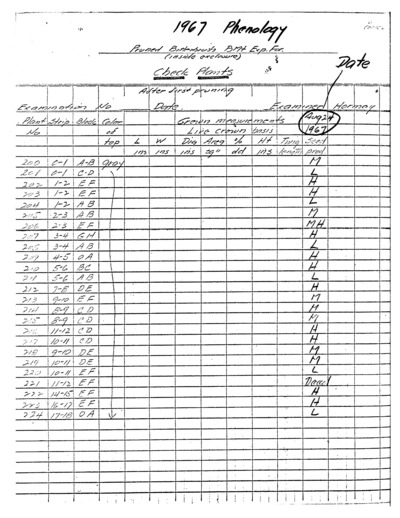 1967 Phenology
Pruned Bitterbrush BMt Exp. For.
(inside exclosure)
Date
Check Plants
After first pruning
Examination No Date Examined Hormay
Plant Strip Block Color Crown measurements Aug 24
No of Live crown basis 1967
top L W Dia Area % Ht Twig Seed
ins ins ins sq" dd ins length prod
200 0-1 A-B Gray M
201 0-1 C-D L
202 1-2 EF H
203 1-2 EF H
204 1-2 AB L
205 2-3 AB M
206 2-3 EF MH
207 3-4 GH H
208 3-4 AB L
209 4-5 OA H
210 5-6 BC H
211 5-6 AB L
212 7-8 DE H
213 9-10 EF M
214 8-9 CD M
215 8-9 CD M
216 11-12 CD H
217 10-11 CD H
218 9-10 DE M
219 10-11 DE M
220 10-11 EF L
221 11-12 EF Dead
222 14-15 EF H
223 16-17 EF H
224 17-18 OA L